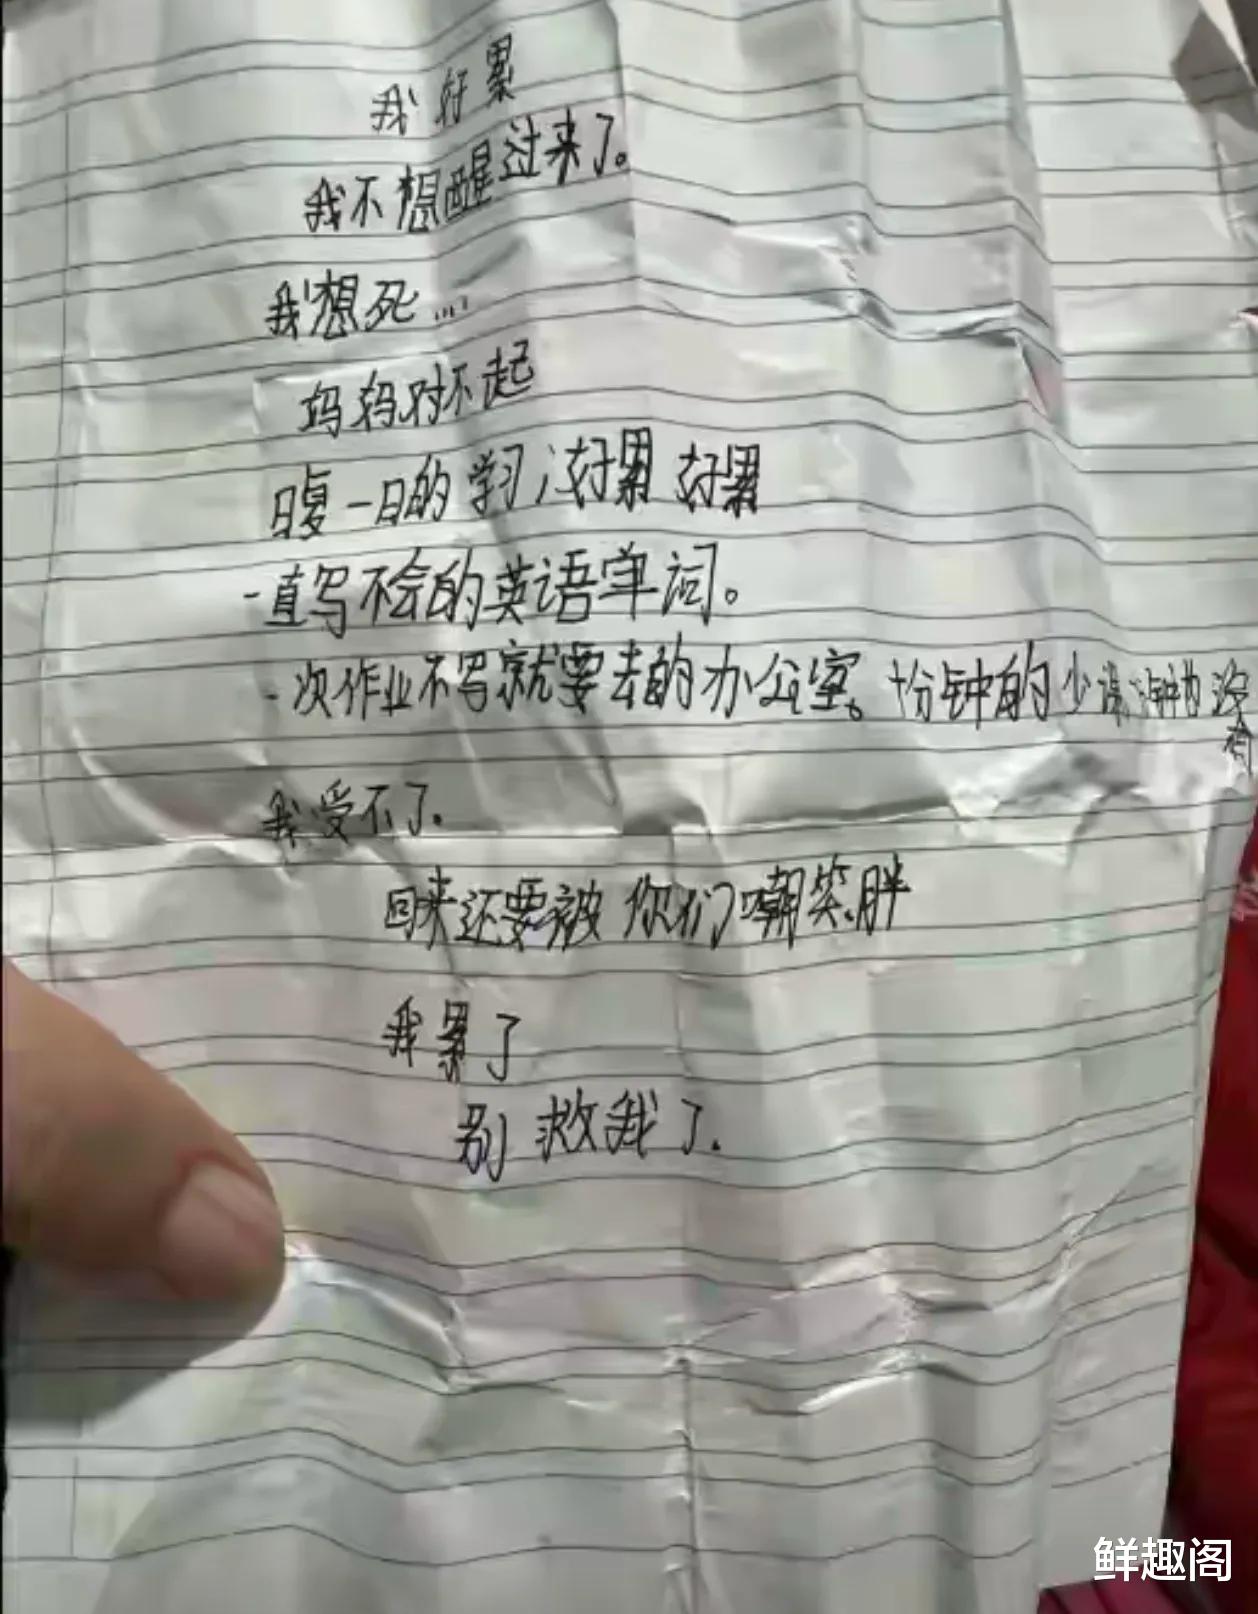 我好累
我不想醒过来了。
我想死...
妈妈对不起
日复一日的学习，好累 好累
一直写不会的英语单词。
一次作业不写就要去的办公室。十分钟的少课 钟的没有
我受不了.
回来还要被你们嘲笑胖
我累了
别救我了.
鲜趣阁